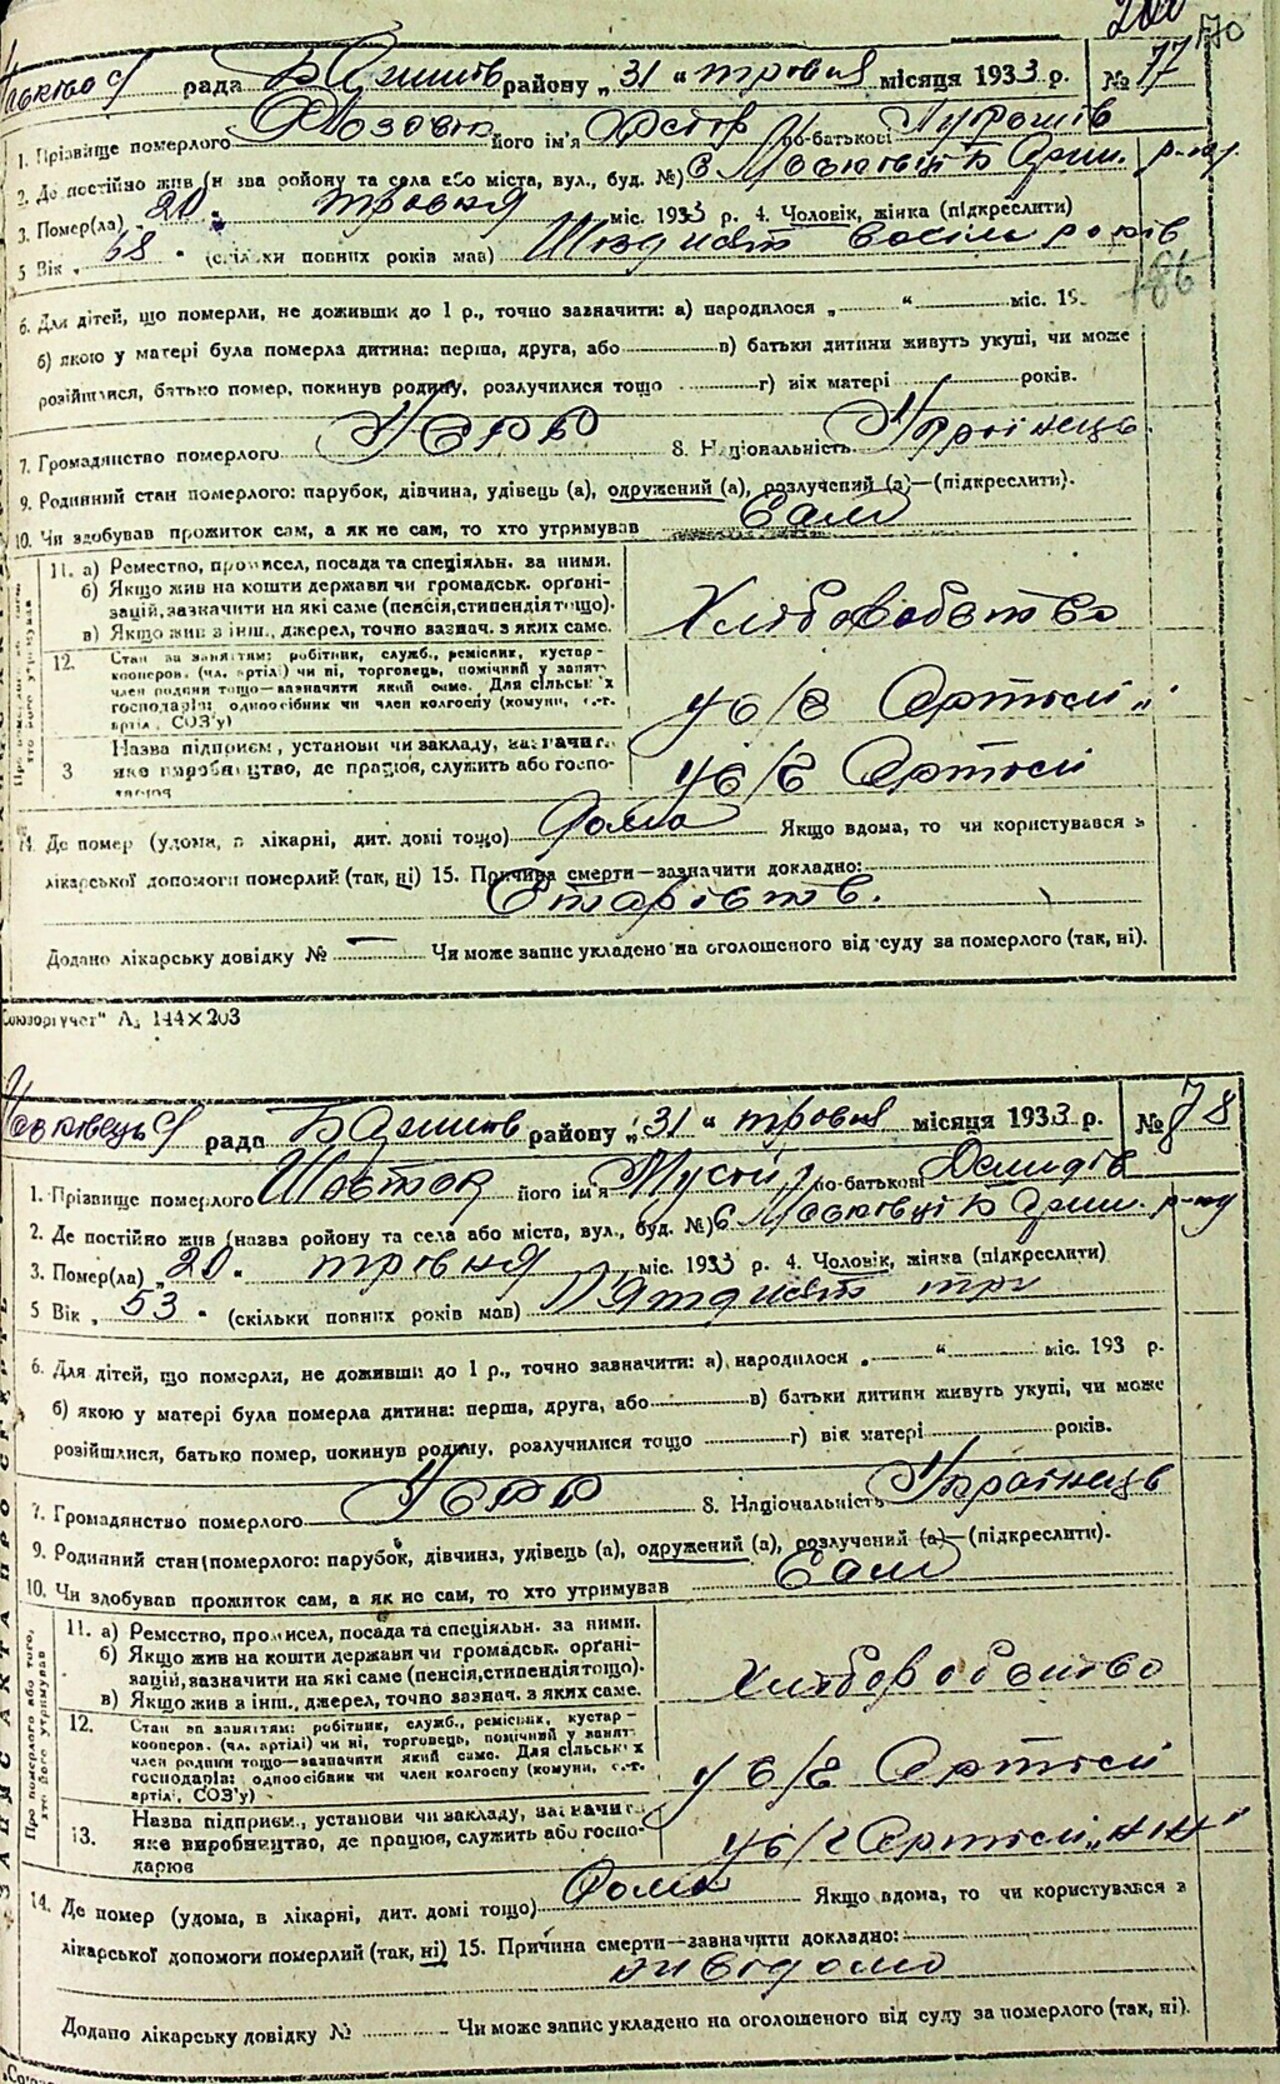 200 170
рада Б Яришів району „31“ травня місяця 1933 р. № 77
1. Прізвище померлого Лозовік його ім'я Нестор по-батькові
2. Де постійно жив (назва району та села або міста, вул., буд. №) С М Яриш. р-ну
3. Помер(ла) „20“ травня міс. 1933 р. 4. Чоловік, жінка (підкреслити)
5 Вік „68“ (скільки повних років мав) Шісдисят восім років
186
6. Для дітей, що померли, не доживши до 1 р., точно зазначити: а) народилося „ “ міс. 19
б) якою у матері була померла дитина: перша, друга, або в) батьки дитини живуть укупі, чи може
розійшлися, батько помер, покинув родину, розлучилися тощо г) вік матері років.
7. Громадянство померлого УСРР 8. Національність Українець
9. Родинний стан померлого: парубок, дівчина, удівець (а), одружений (а), розлучений (а)—(підкреслити).
10. Чи здобував прожиток сам, а як не сам, то хто утримував Сам
11. а) Ремество, промисел, посада та спеціяльн. за ними.
б) Якщо жив на кошти держави чи громадськ. органі-
зацій, зазначити на які саме (пенсія, стипендія тощо).
в) Якщо жив з інш., джерел, точно зазнач. з яких саме.
Хліборобство
12. Стан за заняттям: робітник, служб., ремісник, кустар-
кооперов. (чл. артілі) чи ні, торговець, помічний у занят.
член родини тощо—зазначити який саме. Для сільських
господарів: одноосібник чи член колгоспу (комуни, с.-г.
артіл., СОЗ'у)
у с/г Артілі
3 Назва підприєм., установи чи закладу, зазначит.
яке виробництво, де працюв, служить або госпо-
дарюв
у с/г Артілі
14. Де помер (удома, в лікарні, дит. домі тощо) Дома Якщо вдома, то чи користувався з
лікарської допомоги померлий (так, ні) 15. Причина смерти—зазначити докладно:
Старість
Додано лікарську довідку № — Чи може запис укладено на оголошеного від суду за померлого (так, ні).
Союзоргучет“ А₅ 144×203
рада Б Яришів району „31“ травня місяця 1933 р. № 78
1. Прізвище померлого Шевток його ім'я Мусій по-батькові Демидів
2. Де постійно жив (назва району та села або міста, вул., буд. №) С М Яриш. р-ну
3. Помер(ла) „20“ трівня міс. 1933 р. 4. Чоловік, жінка (підкреслити)
5 Вік „53“ (скільки повних років мав) Пятдисят три
6. Для дітей, що померли, не доживши до 1 р., точно зазначити: а) народилося „ “ міс. 193 р.
б) якою у матері була померла дитина: перша, друга, або в) батьки дитини живуть укупі, чи може
розійшлися, батько помер, покинув родину, розлучилися тощо г) вік матері років.
7. Громадянство померлого УСРР 8. Національність Українець
9. Родинний стан померлого: парубок, дівчина, удівець (а), одружений (а), розлучений (а)—(підкреслити).
10. Чи здобував прожиток сам, а як не сам, то хто утримував Сам
Про померлого або того, хто його утримував
11. а) Ремество, промисел, посада та спеціяльн. за ними.
б) Якщо жив на кошти держави чи громадськ. органі-
зацій, зазначити на які саме (пенсія, стипендія тощо).
в) Якщо жив з інш., джерел, точно зазнач. з яких саме.
Хліборобство
12. Стан за заняттям: робітник, служб., ремісник, кустар-
кооперов. (чл. артілі) чи ні, торговець, помічний у занят.
член родини тощо—зазначити який саме. Для сільських
господарів: одноосібник чи член колгоспу (комуни, с.-г.
артіл., СОЗ'у)
у с/г Артілі
13. Назва підприєм., установи чи закладу, зазначит.
яке виробництво, де працюв, служить або госпо-
дарюв
у с/г Артілі
14. Де помер (удома, в лікарні, дит. домі тощо) Дома Якщо вдома, то чи користувався з
лікарської допомоги померлий (так, ні) 15. Причина смерти—зазначити докладно:
нивідомо
Додано лікарську довідку № Чи може запис укладено на оголошеного від суду за померлого (так, ні).